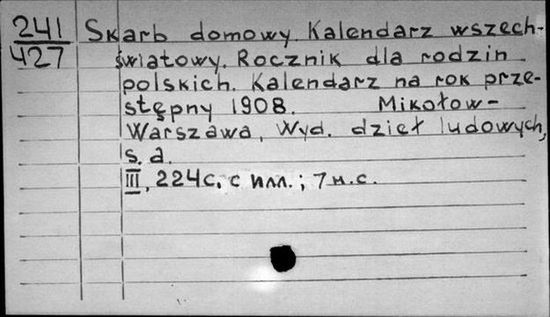 241
427
Skarb domowy. Kalendarz wszech-
światowy. Rocznik dla rodzin
polskich. Kalendarz na rok prze-
stępny 1908. Mikołow-
Warszawa, Wyd. dzieł ludowych,
s. a.
III, 224 с. с илл.; 7 н. с.